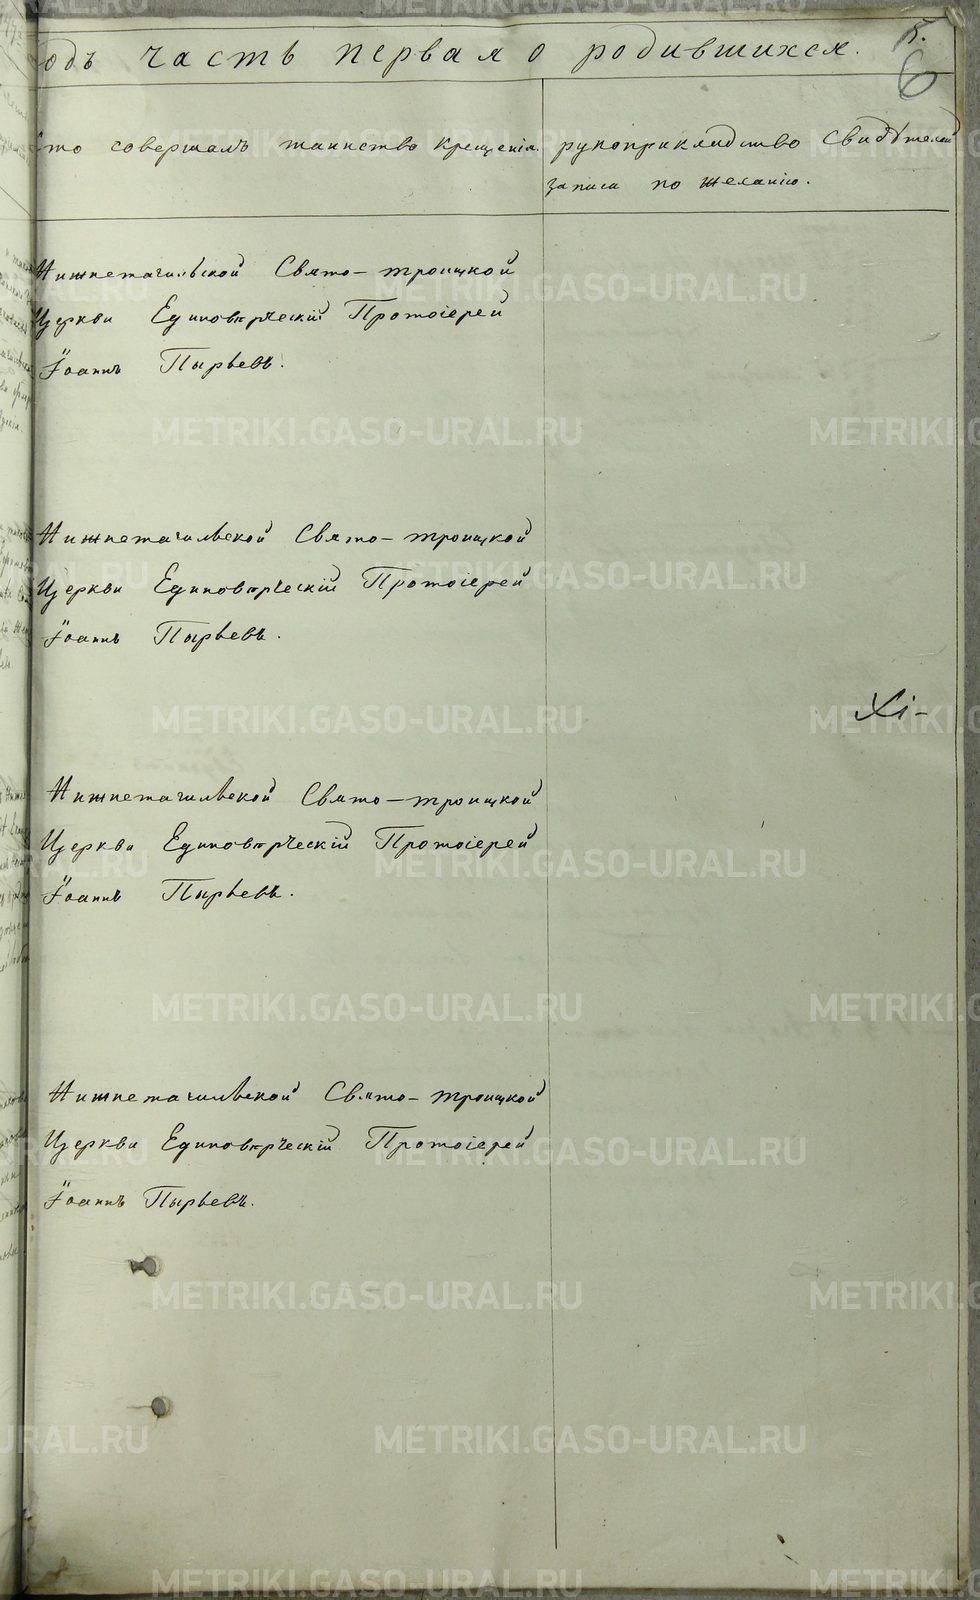 одъ часть первая о родившихся.
5.
6
Кто совершалъ таинство крещенія.
рукоприкладство свидѣтелей
записи по желанію.
Нижнетагильской Свято-троицкой
Церкви Единовѣрческій Протоіерей
Іоаннъ Пырьевъ.
Нижнетагильской Свято-троицкой
Церкви Единовѣрческій Протоіерей
Іоаннъ Пырьевъ.
Нижнетагильской Свято-троицкой
Церкви Единовѣрческій Протоіерей
Іоаннъ Пырьевъ.
Нижнетагильской Свято-троицкой
Церкви Единовѣрческій Протоіерей
Іоаннъ Пырьевъ.
METRIKI.GASO-URAL.RU